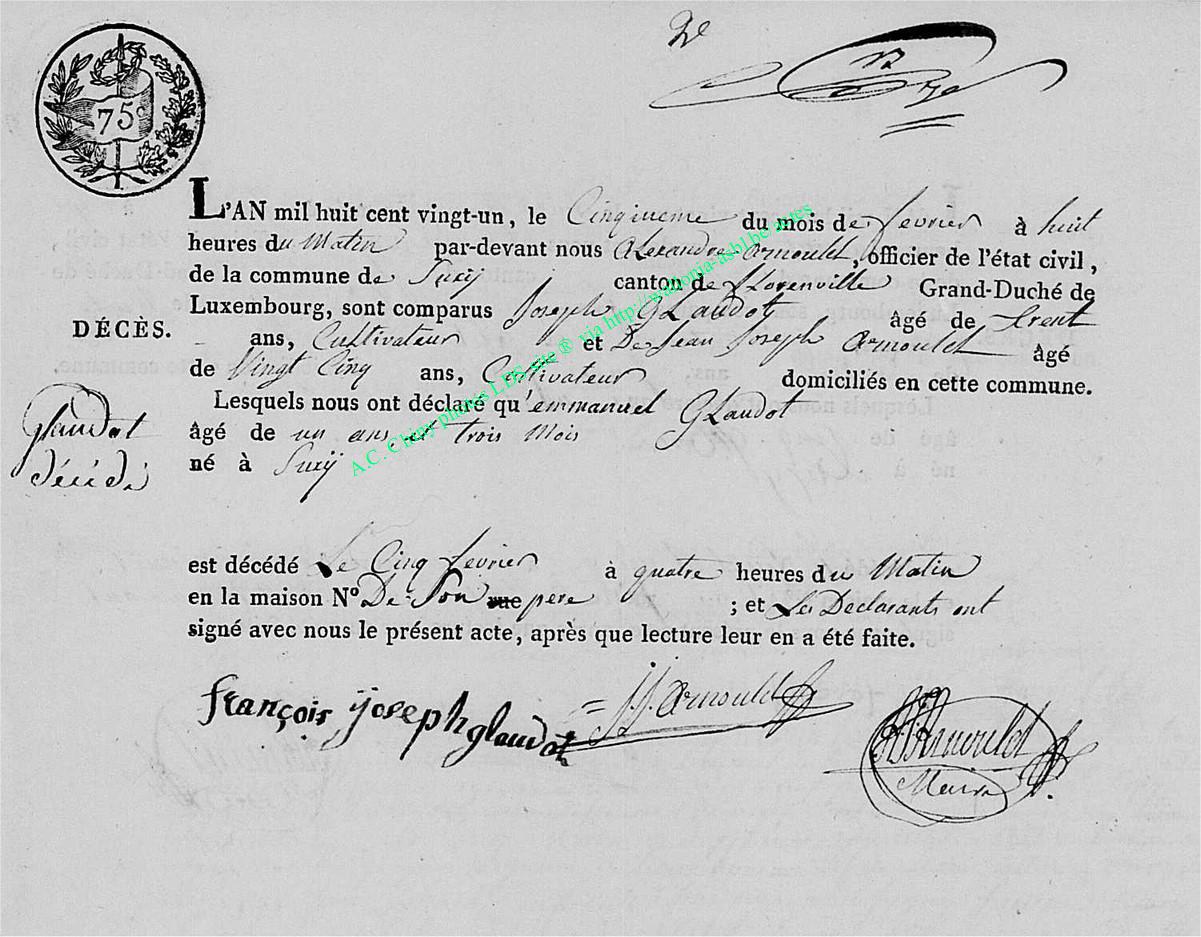 2e
75c
L'AN mil huit cent vingt-un, le Cinqiueme du mois de fevrier à huit
heures du Matin par-devant nous Alexandre Arnoulet, officier de l'état civil,
de la commune de Suxÿ canton de fLorenville Grand-Duché de
Luxembourg, sont comparus Joseph GLaudot âgé de trent
DÉCÈS.
ans, Cultivateur et De Jean Joseph Arnoulet âgé
de Vingt Cinq ans, Cultivateur domiciliés en cette commune.
Lesquels nous ont déclaré qu'emmanuel GLaudot
Glaudot
décédé
âgé de un ans et trois Mois
né à Suxÿ
est décédé Le Cinq fevrier à quatre heures du Matin
en la maison No De Son rue pere ; et Les Declarants ont
signé avec nous le présent acte, après que lecture leur en a été faite.
françois ÿoseph glaudot
J.J. Arnoulet
Arnoulet
Maire
A.C. Chiny photos LDS site ® via http://wallonia-asbl.be actes